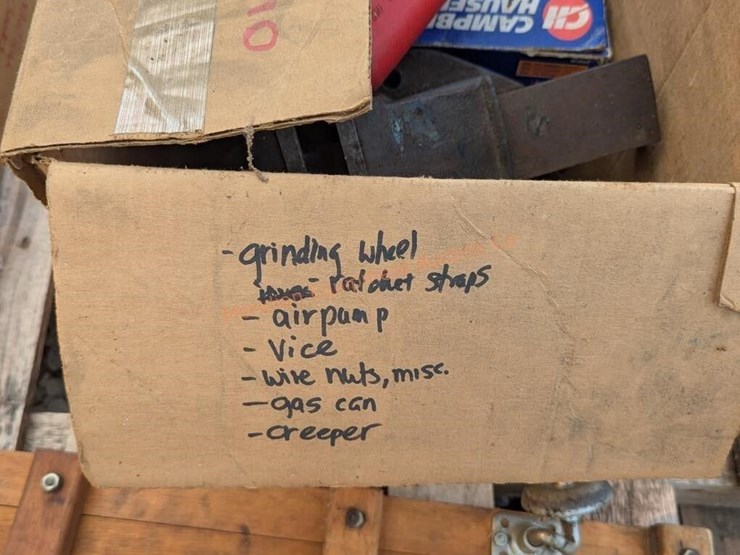 10
CAMPBE
HAUSF
CH
- grinding wheel
- ratchet straps
- airpump
- Vice
- wire nuts, misc.
- gas can
- creeper